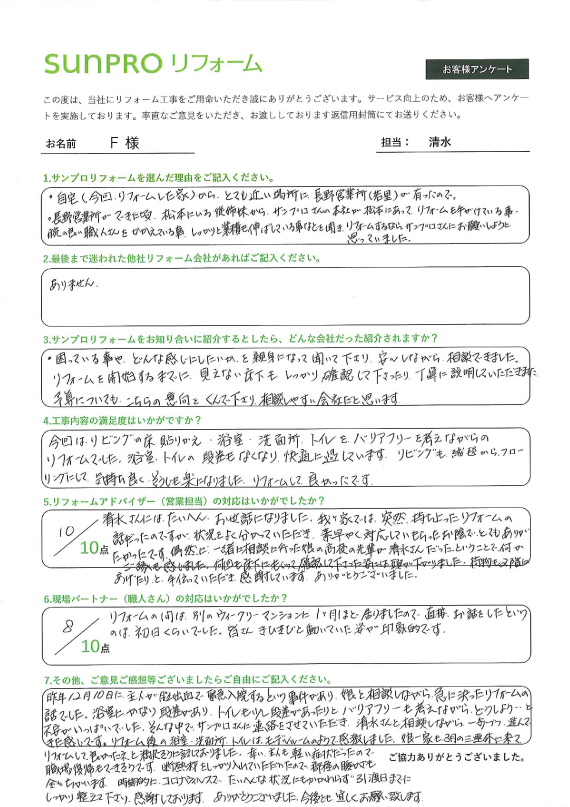 SUNPRO リフォーム
お客様アンケート
この度は、当社にリフォーム工事をご用命いただき誠にありがとうございます。サービス向上のため、お客様へアンケー
トを実施しております。率直なご意見をいただき、お渡ししております返信用封筒にてお送りください。
お名前 F 様 担当： 清水
1.サンプロリフォームを選んだ理由をご記入ください。
・自宅(今回、リフォームした家)から、とても近い場所に長野営業所(若里)が有ったので。
・長野営業所ができた頃、松本にいる従姉妹から、サンプロさんの本社が松本にあって、リフォームを手がけている事・
腕の良い職人さんをかかえている事、しっかりと業績を伸ばしている事などを聞き、リフォームするなら、サンプロさんにお願いしようと
思っていました。
2.最後まで迷われた他社リフォーム会社があればご記入ください。
ありません。
3.サンプロリフォームをお知り合いに紹介するとしたら、どんな会社だった紹介されますか？
・困っている事や、どんな感じにしたいか、を親身になって聞いて下さり、安心しながら、相談できました。
リフォームを開始するまでに、見えない床下もしっかり確認して下さったり、丁寧に説明していただきました。
予算についても、こちらの意向をくんで下さり、相談しやすい会社だと思います。
4.工事内容の満足度はいかがですか？
今回は、リビングの床貼りかえ・浴室・洗面所、トイレをバリアフリーを考えながらの
リフォームでした。浴室、トイレの段差もなくなり、快適に過しています。リビングも絨毯から、フロー
リングにして、気持ち良く、そうじも楽になりました。リフォームして良かったです。
5.リフォームアドバイザー（営業担当）の対応はいかがでしたか？
10／10点
清水さんには、たいへん、お世話になりました。我が家では、突然、持ち上ったリフォームの
話だったのですが、状況をよく分かっていただき、素早やく対応していもらったお陰で、とてもありが
たかったです。偶然に、一緒に相談に行った娘の高校の先輩が清水さんだったということで、何か
ご縁を感じました。何回も床下にもぐって確認して下さった姿には頭が下がりました。
あげたり、と、手伝っていただき、感謝しています。ありがとうございました。
6.現場パートナー（職人さん）の対応はいかがでしたか？
8／10点
リフォームの間は、別のウィークリーマンションに1ヶ月ほど居りましたので、直接、お話をしたという
のは、初日くらいでした。皆さんきびきびと動いていた姿が印象的です。
7.その他、ご意見ご感想等ございましたらご自由にご記入ください。
昨年12月10日に主人が脳出血で緊急入院するという事件があり、娘と相談しながら、急に決ったリフォームの
話でした。浴室にかなり段差があり、トイレも少し段差があったりとバリアフリーも考えながら、どうしよう…と
不安がいっぱいでした。そんな中で、サンプロさんに連絡をさせていただき、清水さんと相談しながら、一歩づつ、進んで
きた感じです。リフォーム後の浴室・洗面所、トイレは、モデルルームのようで感激しました。娘一家も3月の三連休に来て
リフォームして良かったネ、と
職場復帰もできそうです。断熱材もしっかり入れていただいたので、部屋の暖かさも
全然ちがいます。時節的に、コロナウィルスで、たいへんな状況にもかかわらず、引渡日までに
しっかり整えて下さり、感謝しております。ありがとうございました。今後とも宜しくお願い致します。
ご協力ありがとうございました。